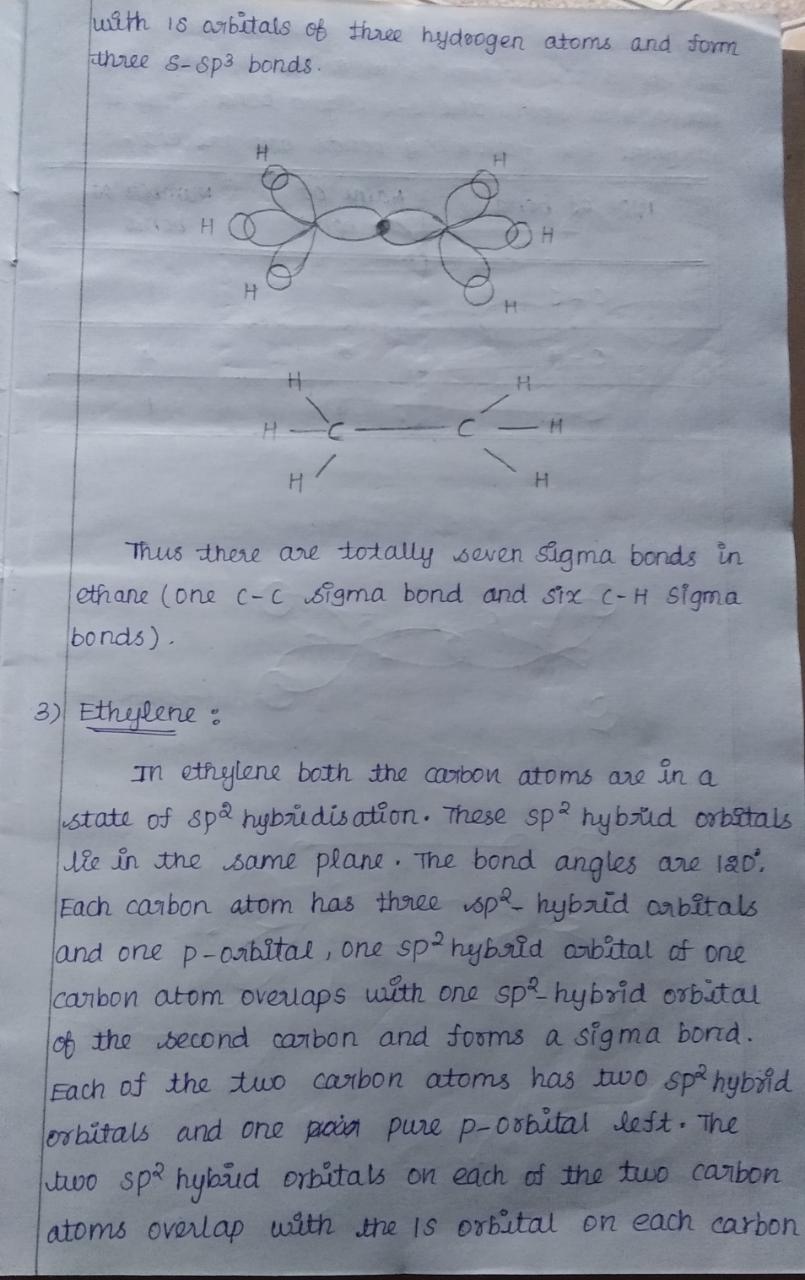 with 1s orbitals of three hydrogen atoms and form
three s-sp³ bonds.
H H
H H
H H
H H
H C C H
H H
Thus there are totally seven sigma bonds in
ethane (one C-C sigma bond and six C-H sigma
bonds).
3) Ethylene :
In ethylene both the carbon atoms are in a
state of sp² hybridisation. These sp² hybrid orbitals
lie in the same plane. The bond angles are 120°.
Each carbon atom has three sp²- hybrid orbitals
and one p-orbital, one sp² hybrid orbital of one
carbon atom overlaps with one sp²-hybrid orbital
of the second carbon and forms a sigma bond.
Each of the two carbon atoms has two sp² hybrid
orbitals and one pure p-orbital left. The
two sp² hybrid orbitals on each of the two carbon
atoms overlap with the 1s orbital on each carbon